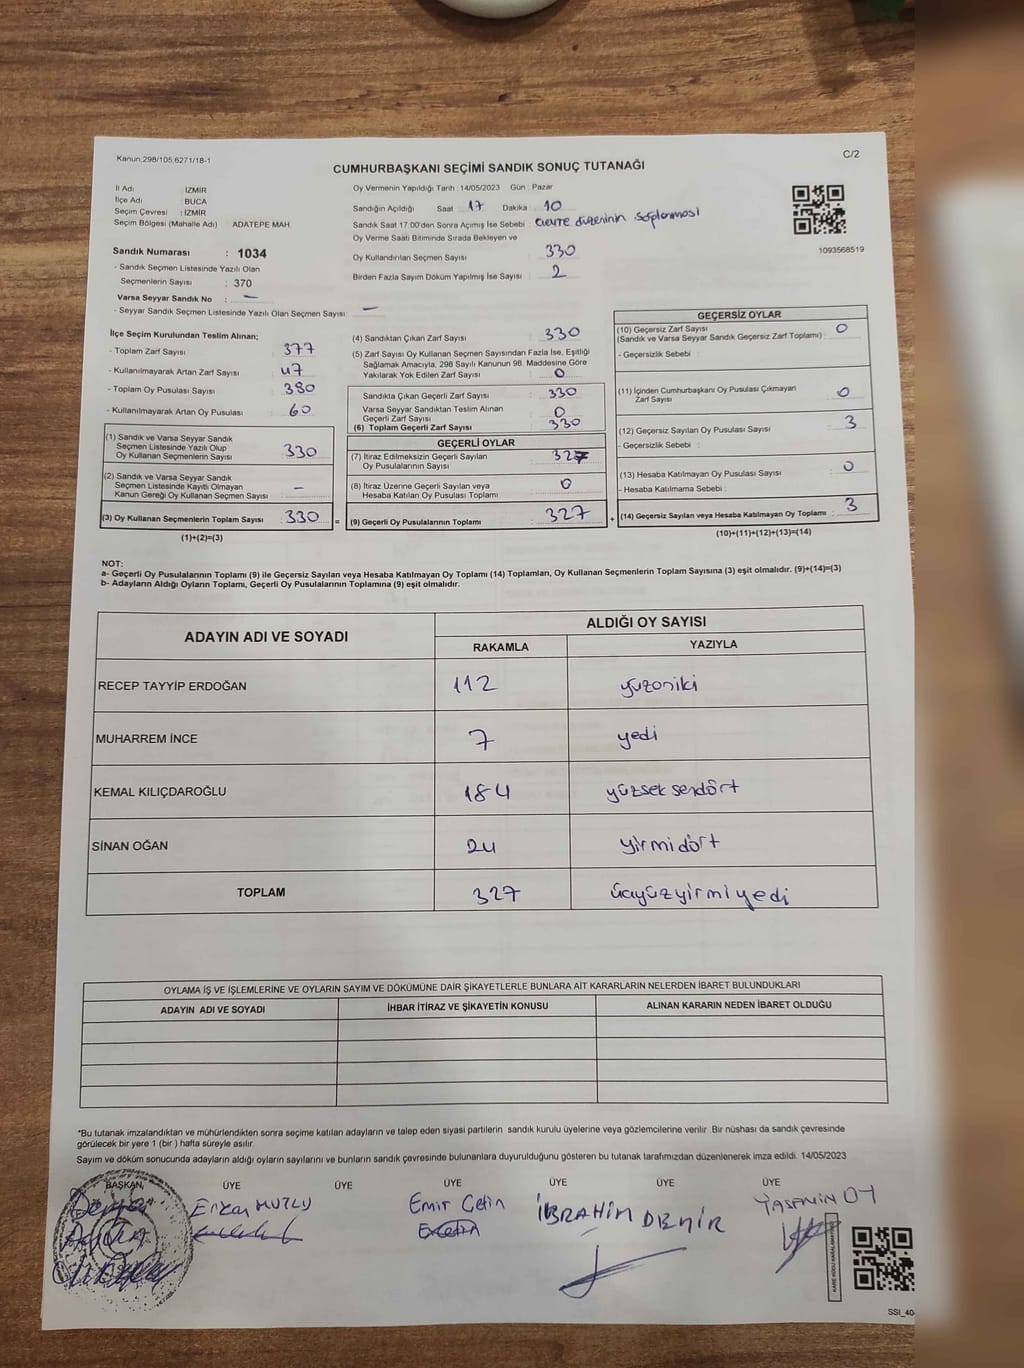 Kanun:298/105,6271/18-1
C/2
CUMHURBAŞKANI SEÇİMİ SANDIK SONUÇ TUTANAĞI
İl Adı : İZMİR
İlçe Adı : BUCA
Seçim Çevresi : İZMİR
Seçim Bölgesi (Mahalle Adı) ADATEPE MAH
Sandık Numarası : 1034
- Sandık Seçmen Listesinde Yazılı Olan
Seçmenlerin Sayısı : 370
Varsa Seyyar Sandık No : —
- Seyyar Sandık Seçmen Listesinde Yazılı Olan Seçmen Sayısı: —
Oy Vermenin Yapıldığı Tarih : 14/05/2023 Gün : Pazar
Sandığın Açıldığı Saat 17 Dakika 10
Sandık Saat 17.00'den Sonra Açımış İse Sebebi : Çevre düzeninin sağlanması
Oy Verme Saati Bitiminde Sırada Bekleyen ve
Oy Kullandırılan Seçmen Sayısı : 330
Birden Fazla Sayım Döküm Yapılmış İse Sayısı : 2
1093568519
İlçe Seçim Kurulundan Teslim Alınan;
- Toplam Zarf Sayısı : 377
- Kullanılmayarak Artan Zarf Sayısı : 47
- Toplam Oy Pusulası Sayısı : 380
- Kullanılmayarak Artan Oy Pusulası : 60
(1) Sandık ve Varsa Seyyar Sandık
Seçmen Listesinde Yazılı Olup
Oy Kullanan Seçmenlerin Sayısı : 330
(2) Sandık ve Varsa Seyyar Sandık
Seçmen Listesinde Kayıtlı Olmayan
Kanun Gereği Oy Kullanan Seçmen Sayısı : —
(3) Oy Kullanan Seçmenlerin Toplam Sayısı : 330 =
(1)+(2)=(3)
(4) Sandıktan Çıkan Zarf Sayısı : 330
(5) Zarf Sayısı Oy Kullanan Seçmen Sayısından Fazla İse, Eşitliği
Sağlamak Amacıyla, 298 Sayılı Kanunun 98. Maddesine Göre
Yakılarak Yok Edilen Zarf Sayısı : 0
Sandıkta Çıkan Geçerli Zarf Sayısı : 330
Varsa Seyyar Sandıktan Teslim Alınan
Geçerli Zarf Sayısı : 0
(6) Toplam Geçerli Zarf Sayısı : 330
GEÇERLİ OYLAR
(7) İtiraz Edilmeksizin Geçerli Sayılan
Oy Pusulalarının Sayısı : 327
(8) İtiraz Üzerine Geçerli Sayılan veya
Hesaba Katılan Oy Pusulası Toplamı : 0
(9) Geçerli Oy Pusulalarının Toplamı : 327 +
GEÇERSİZ OYLAR
(10) Geçersiz Zarf Sayısı
(Sandık ve Varsa Seyyar Sandık Geçersiz Zarf Toplamı) : 0
- Geçersizlik Sebebi :
(11) İçinden Cumhurbaşkanı Oy Pusulası Çıkmayan
Zarf Sayısı : 0
(12) Geçersiz Sayılan Oy Pusulası Sayısı : 3
- Geçersizlik Sebebi :
(13) Hesaba Katılmayan Oy Pusulası Sayısı : 0
- Hesaba Katılmama Sebebi :
(14) Geçersiz Sayılan veya Hesaba Katılmayan Oy Toplamı : 3
(10)+(11)+(12)+(13)=(14)
NOT:
a- Geçerli Oy Pusulalarının Toplamı (9) ile Geçersiz Sayılan veya Hesaba Katılmayan Oy Toplamı (14) Toplamları, Oy Kullanan Seçmenlerin Toplam Sayısına (3) eşit olmalıdır. (9)+(14)=(3)
b- Adayların Aldığı Oyların Toplamı, Geçerli Oy Pusulalarının Toplamına (9) eşit olmalıdır.
ADAYIN ADI VE SOYADI
ALDIĞI OY SAYISI
RAKAMLA YAZIYLA
RECEP TAYYİP ERDOĞAN 112 yüzoniki
MUHARREM İNCE 7 yedi
KEMAL KILIÇDAROĞLU 184 yüzseksendört
SİNAN OĞAN 24 yirmidört
TOPLAM 327 üçyüzyirmiyedi
OYLAMA İŞ VE İŞLEMLERİNE VE OYLARIN SAYIM VE DÖKÜMÜNE DAİR ŞİKAYETLERLE BUNLARA AİT KARARLARIN NELERDEN İBARET BULUNDUKLARI
ADAYIN ADI VE SOYADI İHBAR İTİRAZ VE ŞİKAYETİN KONUSU ALINAN KARARIN NEDEN İBARET OLDUĞU
*Bu tutanak imzalandıktan ve mühürlendikten sonra seçime katılan adayların ve talep eden siyasi partilerin sandık kurulu üyelerine veya gözlemcilerine verilir. Bir nüshası da sandık çevresinde
görülecek bir yere 1 (bir ) hafta süreyle asılır.
Sayım ve döküm sonucunda adayların aldığı oyların sayılarını ve bunların sandık çevresinde bulunanlara duyurulduğunu gösteren bu tutanak tarafımızdan düzenlenerek imza edildi. 14/05/2023
BAŞKAN ÜYE ÜYE ÜYE ÜYE ÜYE ÜYE
Erkan MUTLU Emir Çetin İBRAHİM DEMİR YASEMİN OY
SSI_40